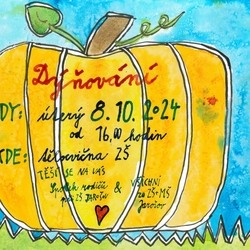 Dýňování
DY: úterý 8. 10. 2024
od 16,00 hodin
KDE: tělocvična ZŠ
TĚŠÍ SE NA VÁS
Spolek rodičů & VŠICHNI
při ZŠ JAROŠOV ze ZŠ+MŠ
Jarošov